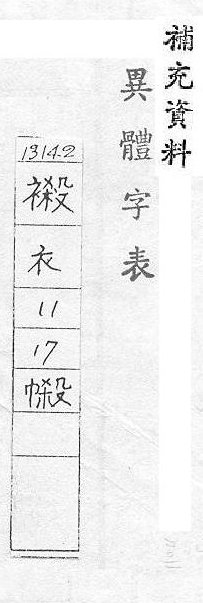 補充資料
異體字表
1314.2
衣
11
17